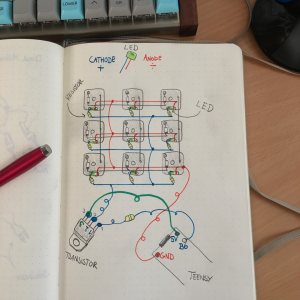 LED
CATHODE ANODE
+ ÷
RESISTOR
LED
5V
B6
GND
TRANSISTOR
TEENSY